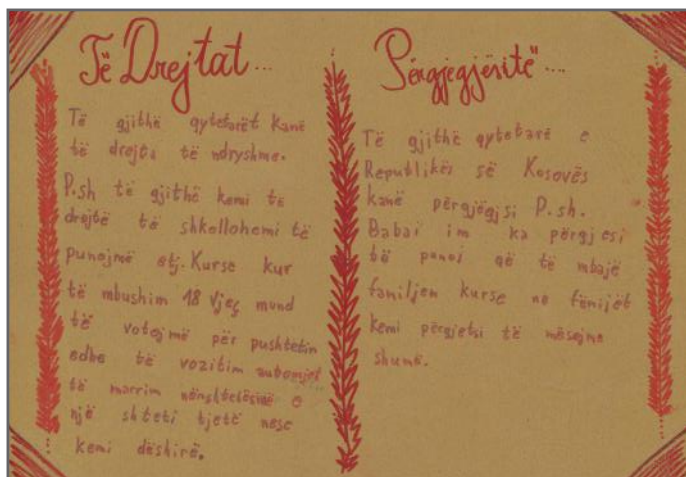 Të Drejtat...
Të gjithë qytetarët kanë
të drejta të ndryshme.
P.sh të gjithë kemi të
drejtë të shkollohemi të
punojmë etj. Kurse kur
të mbushim 18 vjeç mund
të votojmë për pushtetin
edhe të vozitim automjet
të marrim nënshtetësinë e
një shteti tjetë nese
kemi dëshirë.
Përgjegjësitë...
Të gjithë qytetarë e
Republikës së Kosovës
kanë përgjëgjsi P.sh.
Babai im ka përgjesi
të punoj që të mbajë
familjen kurse ne fëmijët
kemi përgjetsi të mësojme
shumë.